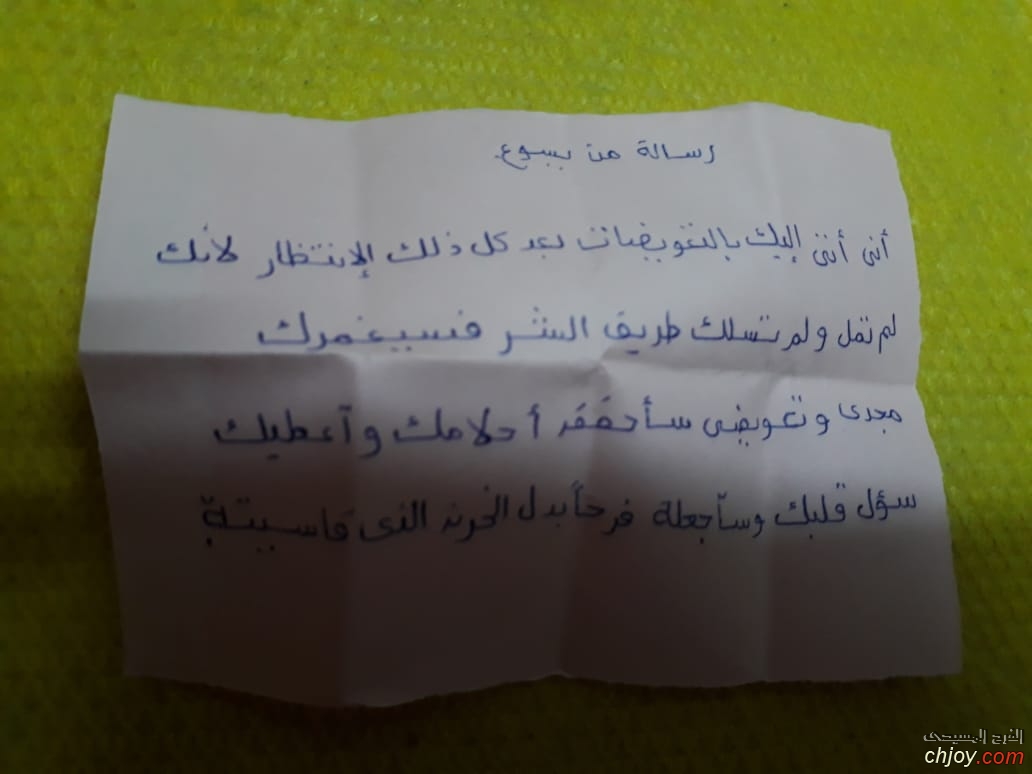 رسالة من يسوع.
أنى أتى إليك بالتعويضات بعد كل ذلك الإنتظار لأنك
لم تمل ولم تسلك طريق الشر فسيغمرك
مجدى وتعويضى سأحقق أحلامك وآعطيك
سؤل قلبك وسآجعلة فرحاً بدل الحزن الذى قاسيتة
الفرح المسيحى
chjoy.com